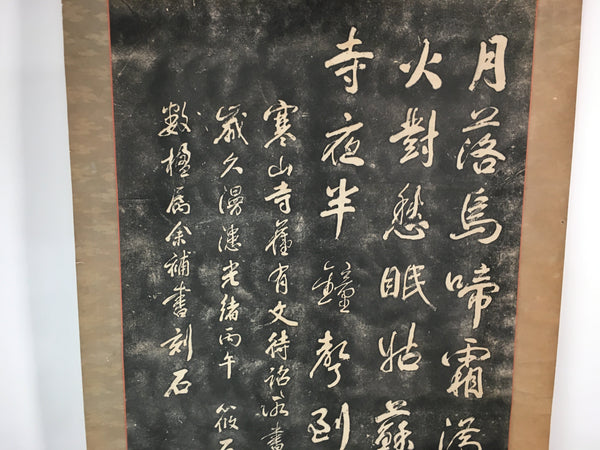 月落烏啼霜滿
火對愁眠姑蘇
寺夜半鐘聲到
寒山寺舊有文待詔所書
歲久漫漶光緒丙午筱石
數楹屬余補書刻石